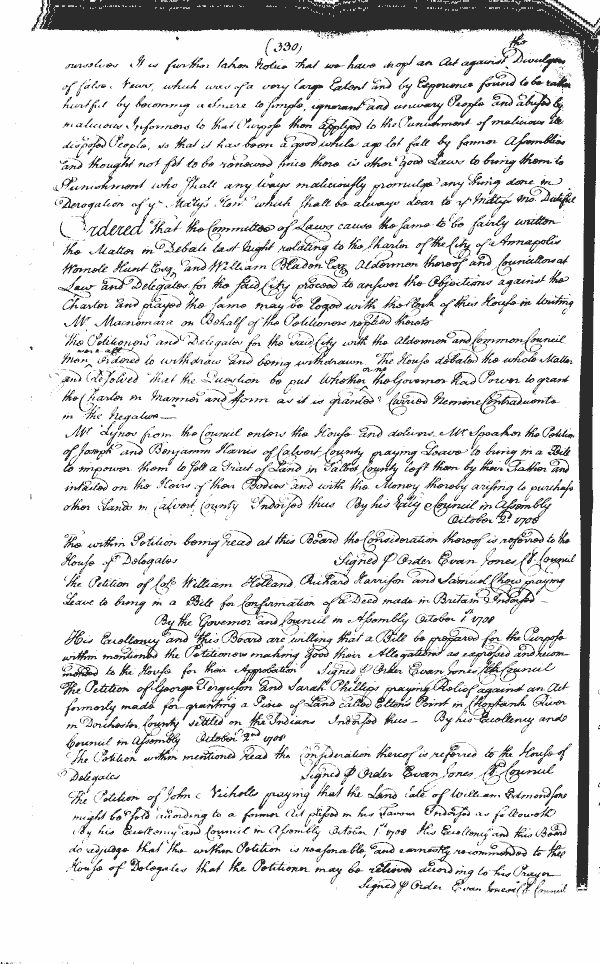 (330)
the
ourselves It is further taken Notice that we have dropt an Act against Divulgers
of false News, which was of a very large Extent and by Experience found to be rather
hurtful by becoming a Snare to simple, ignorant and unwary People and abused by
malicious Informers to that Purpose then applyed to the Punishment of malicious ill
disposed People, so that it has been a good while ago let fall by former Assemblies
and thought not fit to be renewed since there is other good Laws to bring them to
Punishment who shall any ways maliciously promulge any thing done in
Derogation of ye Matys Honr which shall be always dear to ye Matys mo: Dutiful
Ordered that the Committee of Laws cause the same to be fairly written
the Matter in Debate last Night relating to the Charter of the City of Annapolis
Wornell Hunt Esqr and William Bladen Esqr Aldermen thereof and Councillors at
Law and Delegates for the said City proceed to answer the Objections against the
Charter and prayed the same may be lodged with the Clerk of this House in Writing
Mr Macnemara on Behalf of the Petitioners replied thereto
The Petitioners and Delegates for the said City with the Aldermen and Common Council
Men were all ordered to withdraw and being withdrawn The House debated the whole Matter
and Resolved that the Question be put Whether or no the Governor had Power to grant
the Charter in Manner and Form as it is granted Carried Nemine Contradicente
in the Negative
Mr Tynos from the Council enters the House and delivers Mr Speaker the Petition
of Joseph and Benjamin Harris of Calvert County praying Leave to bring in a Bill
to impower them to Sell a Tract of Land in Talbot County left them by their Father and
intailed on the Heirs of their Bodies and with the Money thereby arising to purchase
other Lands in Calvert County Indorsed thus By his Exlly & Council in Assembly
October 2d 1708
The within Petition being read at this Board the Consideration thereof is referred to the
House of Delegates Signed P Order Evan Jones Cl. Council
The Petition of Coll William Holland Richard Harrison and Samuel Chew praying
Leave to bring in a Bill for Confirmation of a Deed made in Britain Indorsed
By the Governor and Council in Assembly October 1st 1708
His Excellency and this Board are willing that a Bill be prepared for the Purpose
within mentioned the Petitioners making good their Allegations as expressed and recom
mended to the House for their Approbation Signed P Order Evan Jones Cl Council
The Petition of George Ferguson and Sarah Phillips praying Relief against an Act
formerly made for granting a Piece of Land called Ellens Point in Choptank River
in Dorchester County settled on the Indians Indorsed thus By his Excellency and
Council in Assembly October 2nd 1708
The Petition within mentioned read the Consideration thereof is referred to the House of
Delegates Signed P Order Evan Jones Cl Council
The Petition of John Nicholls praying that the Land late of William Edmondson
might be sold according to a former Act passed in his Favour Indorsed as followeth
By his Excellency and Council in Assembly October 1st 1708 His Excellency and this Board
do adjudge that the within Petition is reasonable, and earnestly recommended to the
House of Delegates that the Petitioner may be relieved according to his Prayer
Signed P Order Evan Jones Cl Council